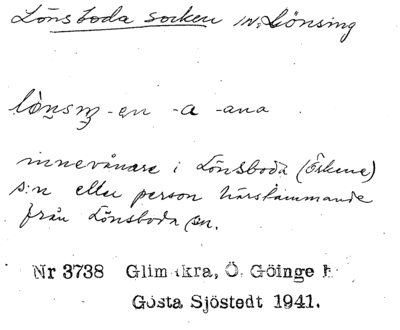 Lönsboda socken inv. Lönsing
-en -a -ana
innevånare i Lönsboda (Örkene)
s:n eller person härstammande
från Lönsboda sn.
Nr 3738 Glimåkra, Ö. Göinge h
Gösta Sjöstedt 1941.